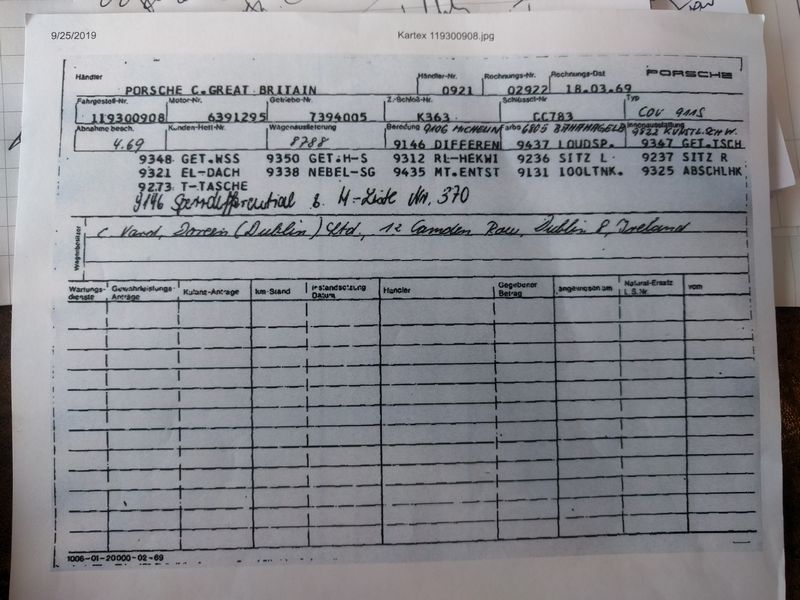 9/25/2019 Kartex 119300908.jpg
Händler Händler-Nr. Rechnungs-Nr. Rechnungs-Dat PORSCHE
PORSCHE C.GREAT BRITAIN 0921 02922 18.03.69
Fahrgestell-Nr. Motor-Nr. Getriebe-Nr. Z.-Schloß-Nr. Schlüssel-Nr. Typ
119300908 6391295 7394005 K363 CC783 COU 911S
Abnahme besch. Kunden-Heft-Nr. Wagenauslieferung Bereifung 9106 MICHELIN Farbe 6805 BAHAMAGELB Innenausstattung
4.69 8788 9146 DIFFEREN 9437 LOUDSP. 9367 GET.TSCH
9348 GET.WSS 9350 GET.H-S 9312 RL-HEKWI 9236 SITZ L 9237 SITZ R
9321 EL-DACH 9338 NEBEL-SG 9435 MT.ENTST 9131 100LTNK. 9325 ABSCHLHK
9273 T-TASCHE
9196 Sperrdifferential M-Liste Nr. 370
Wagenbesitzer
(Dublin) Ltd., 12 Camden Row, Dublin 8, Ireland
Wartungs-dienste Gewährleistungs-Anträge Kulanz-Anträge km-Stand Instandsetzung Datum Händler Gegebener Betrag angewiesen am Natural-Ersatz L.S.Nr. vom
1006-01-20000-02-69